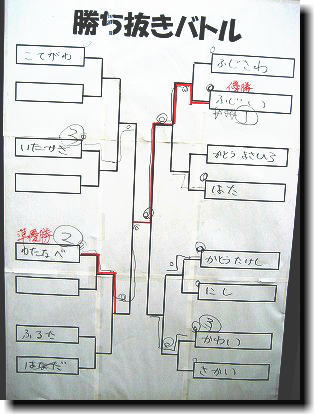 勝ち抜きバトル
こてがわ
②
いたがき
準優勝
②
わたなべ
ふるた
はなだ
ふじさわ
優勝
①
かとう よしひろ
はた
かとうたけし
にし
③
かわい
さかい